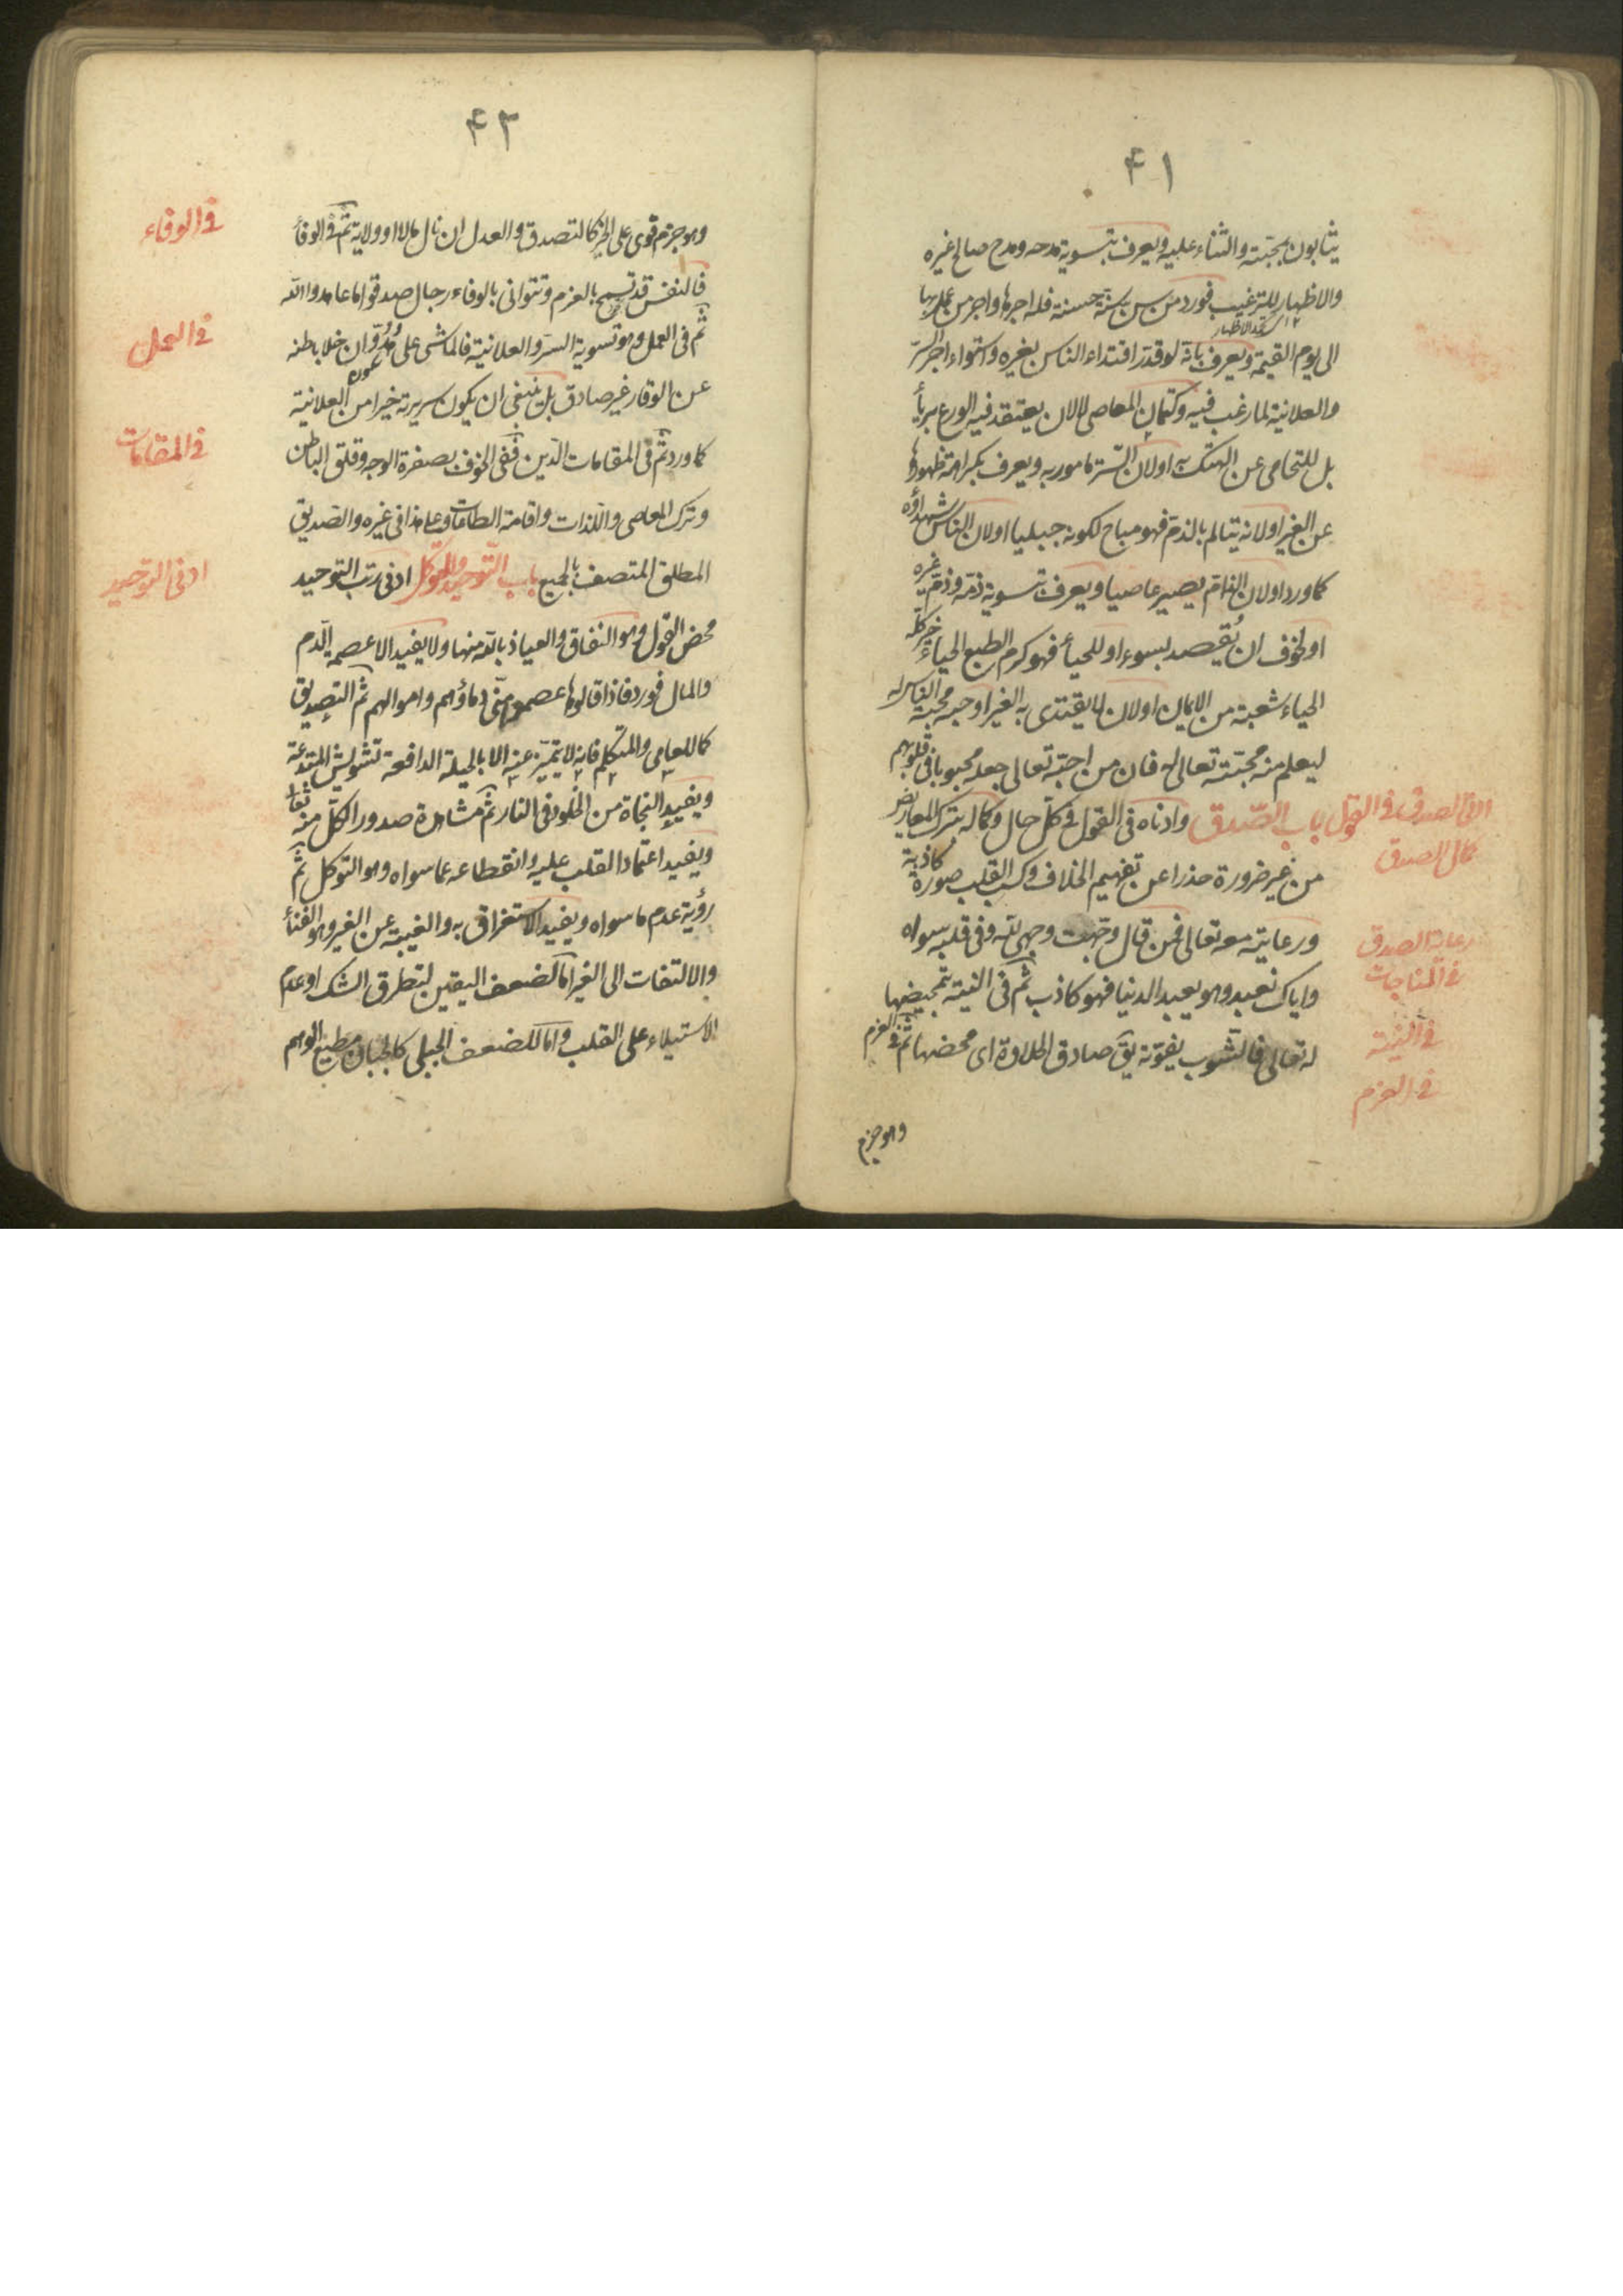 ٤١
يثابون بمحبته والثناء عليه ويعرف بتسوية مدحه ومدح صالح غيره
والاظهار للترغيب فورد من سن سنة حسنة فله اجرها واجر من عمل بها
الى يوم القيمة ويعرف بانه لو قدر اقتداء الناس بغيره واستواء اجر السر
والعلانية لما رغب فيه وكتمان المعاصى لا لان يعتقد فيه الورع بريأ
بل للتحامى عن الهتك اولان الستر مامور به ويعرف بكراهة ظهورها
عن الغير اولانه يتالم بالذم فهو مباح لكونه جبليا اولان الناس شهداؤه
كما ورد اولان الذام يصير عاصيا ويعرف بتسوية ذمه وذم غيره
او لخوف ان يُقصد بسوء او للحيأ فهو كرم الطبع الحياء خير كله
الحياء شعبة من الايمان اولان لا يقتدى به الغير او حبه محبة الناس له
ليعلم منه محبته تعالى له فان من احبه تعالى جعله محبوبا فى قلوبهم
باب الصدق وادناه فى القول فى كل حال وكماله بترك المعاريض
من غير ضرورة حذرا عن تفهيم الخلاف وكسب القلب صورة كاذبة
ورعايته معه تعالى فمن قال وجهت وجهى لله وفى قلبه سواه
واياك نعبد وهو يعبد الدنيا فهو كاذب ثم فى النية بتمحيضها
له تعالى فالشوب يفوته يق صادق الحلاوة اى محضها ثم فى العزم
وهو جزم
ادنى الصدق فى القول
كمال الصدق
رعاية الصدق
فى المناجات
فى النية
فى العزم
٤٣
وهو جزم قوى على الخير كالتصدق والعدل ان نال مالا او ولاية ثم فى الوفأ
فالنفس قد تسمح بالعزم وتتوانى بالوفاء رجال صدقوا ما عاهدوا الله
ثم فى العمل وهو تسوية السر والعلانية فالماشى على هدو ان خلا باطنه
عن الوقار غير صادق بل ينبغى ان يكون سريرته خيرا من العلانية
كما ورد ثم فى المقامات الدين ففى الخوف بصفرة الوجه وقلق الباطن
وترك المعاصى واللذات واقامة الطاعات وعلى هذا فى غيره والصديق
المطلق المتصف بالجميع باب التوحيد والتوكل ادنى رتب التوحيد
محض القول وهو النفاق والعياذ بالله منها ولا يفيد الا عصمة الدم
والمال فورد فاذا قالوها عصموا منى دماؤهم واموالهم ثم التصديق
كما للعامى والمتكلم فانه لا يتميز عنه الا بالحيلة الدافعة تشويش المبتدعة
ويفيد النجاة من الخلود فى النار ثم مشاهدة صدور الكل منه تعا
ويفيد اعتماد القلب عليه وانقطاعه عما سواه وهو التوكل ثم
رؤية عدم ما سواه ويفيد الاستغراق به والغيبة عن الغير وهو الفنأ
والالتفات الى الغير اما لضعف اليقين لتطرق الشك او عدم
الاستيلاء على القلب واما للضعف الجبلى كالجبان مطيع الوهم
فى الوفاء
فى العمل
فى المقامات
ادنى التوحيد